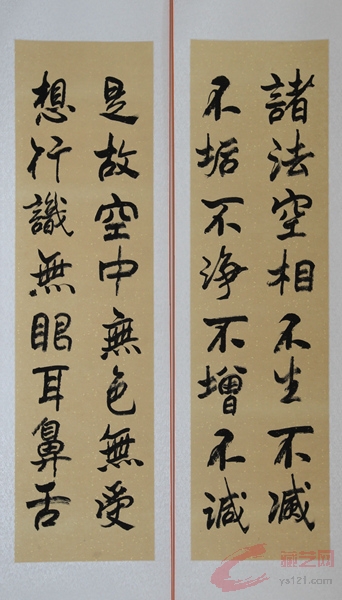 諸法空相不生不滅
不垢不净不增不減
是故空中無色無受
想行識無眼耳鼻舌
藏艺网
ya121.com